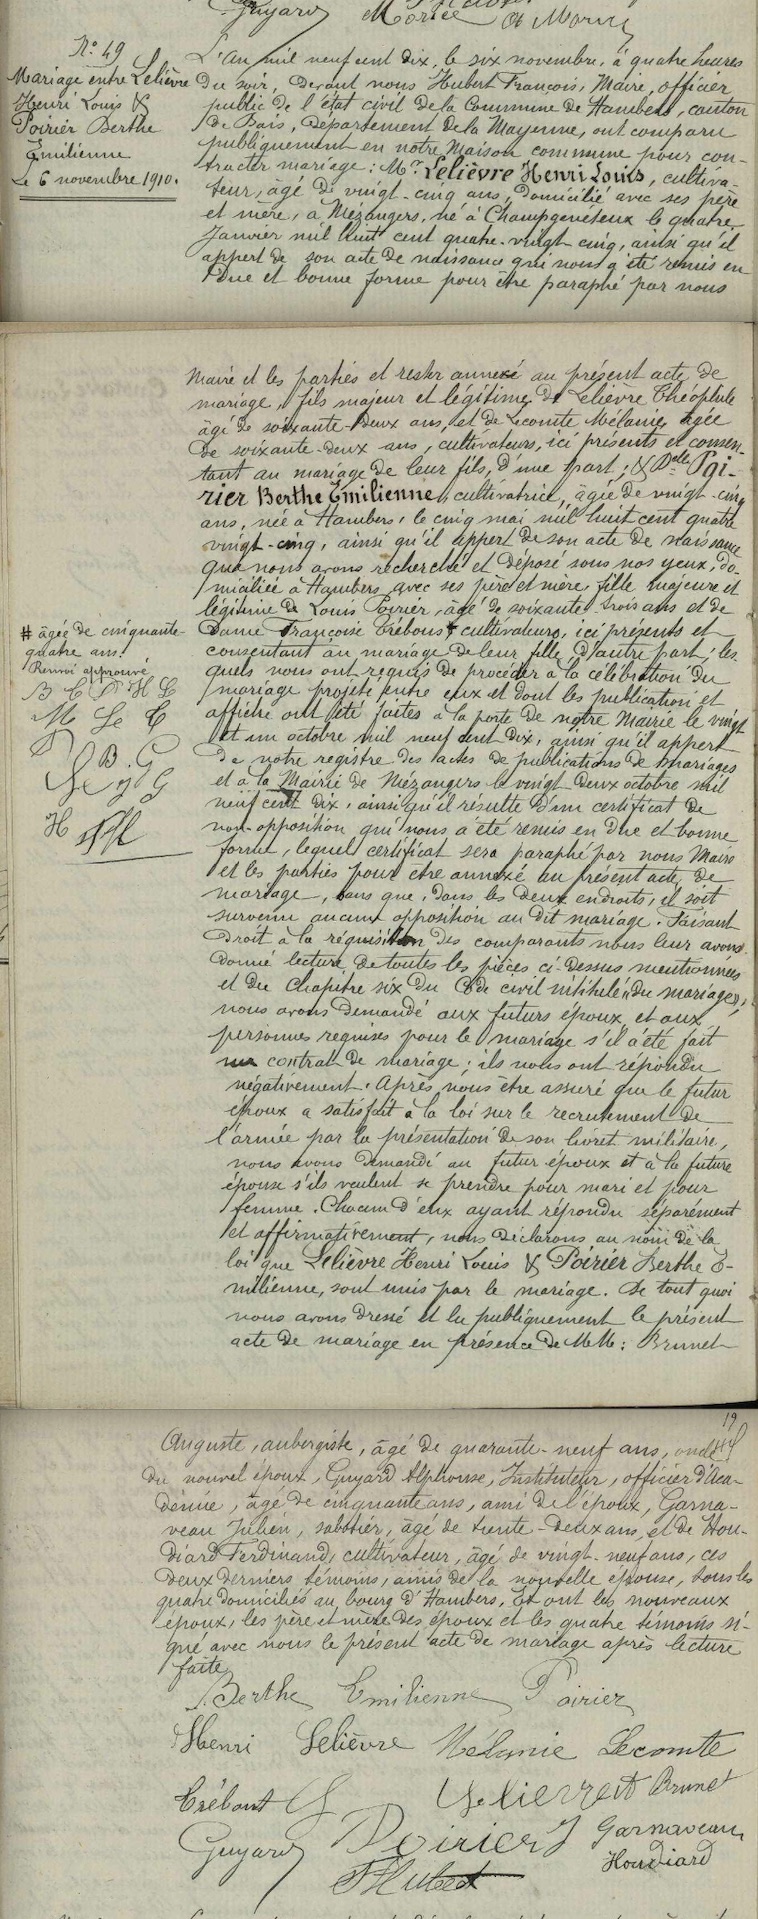 Guyard Morice At Morin
N° 49
Mariage entre Lelièvre
Henri Louis &
Poirier Berthe
Emilienne
Le 6 novembre 1910.
L'An mil neuf cent dix, le six novembre, à quatre heures
du soir, devant nous Hubert François, Maire, officier
public de l'état civil de la Commune de Hambers, canton
de Bais, Département de la Mayenne, ont comparu
publiquement en notre Maison commune pour con-
tracter mariage : Mr Lelièvre Henri Louis, cultiva-
teur, âgé de vingt-cinq ans, domicilié avec ses père
et mère, à Mézangers, né à Champgenéteux le quatre
Janvier mil huit cent quatre-vingt cinq, ainsi qu'il
appert de son acte de naissance qui nous a été remis en
due et bonne forme pour être paraphé par nous
Maire et les parties et rester annexé au présent acte de
mariage, fils majeur et légitime de Lelièvre Théophile
âgé de soixante-deux ans, et de Lecomte Mélanie, âgée
de soixante-deux ans, cultivateurs, ici présents et consen-
tant au mariage de leur fils, d'une part ; & Delle Poi-
rier Berthe Emilienne, cultivatrice, âgée de vingt-cinq
ans, née à Hambers, le cinq mai mil huit cent quatre
vingt-cinq, ainsi qu'il appert de son acte de naissance
que nous avons recherché et déposé sous nos yeux, do-
miciliée à Hambers avec ses père et mère, fille majeure et
légitime de Louis Poirier, âgé de soixante trois ans et de
Dame Françoise Trébous # cultivateurs, ici présents et
consentant au mariage de leur fille, d'autre part ; les-
quels nous ont requis de procéder à la célébration du
mariage projeté entre eux et dont les publication et
affiche ont été faites à la porte de notre Mairie le vingt
et un octobre mil neuf cent dix, ainsi qu'il appert
de notre registre des actes de publications de mariages
et à la Mairie de Mézangers le vingt deux octobre mil
neuf cent dix, ainsi qu'il résulte d'un certificat de
non-opposition qui nous a été remis en due et bonne
forme, lequel certificat sera paraphé par nous Maire
et les parties pour être annexé au présent acte de
mariage, sans que, dans les deux endroits, il soit
survenu aucune opposition au dit mariage. Faisant
droit à la réquisition des comparants nous leur avons
donné lecture de toutes les pièces ci-dessus mentionnées
et du Chapitre six du Code civil intitulé « du mariage »,
nous avons demandé aux futurs époux et aux
personnes requises pour le mariage s'il a été fait
un contrat de mariage ; ils nous ont répondu
négativement. Après nous être assuré que le futur
époux a satisfait à la loi sur le recrutement de
l'armée par la présentation de son livret militaire,
nous avons demandé au futur époux et à la future
épouse s'ils veulent se prendre pour mari et pour
femme. Chacun d'eux ayant répondu séparément
et affirmativement, nous déclarons au nom de la
loi que Lelièvre Henri Louis & Poirier Berthe E-
milienne, sont unis par le mariage. De tout quoi
nous avons dressé et lu publiquement le présent
acte de mariage en présence de MM : Brunet
# âgée de cinquante-
quatre ans.
Renvoi approuvé
B E P H L
M Le C
B G
H FH
19
Auguste, aubergiste, âgé de quarante-neuf ans, oncle
du nouvel époux, Guyard Alphonse, Instituteur, officier d'Aca-
démie, âgé de cinquante ans, ami de l'époux, Garna-
veau Julien, sabotier, âgé de trente-deux ans, et de Hou-
diard Ferdinand, cultivateur, âgé de vingt-neuf ans, ces
deux derniers témoins, amis de la nouvelle épouse, tous les
quatre domiciliés au bourg d'Hambers. Et ont les nouveaux
époux, les père et mère des époux et les quatre témoins si-
gné avec nous le présent acte de mariage après lecture
faite
Berthe Emilienne Poirier
Henri Lelièvre Mélanie Lecomte
Trébout Lelievre At Brunet
Guyard Poirier Garnaveau
Houdiard
F Hubert